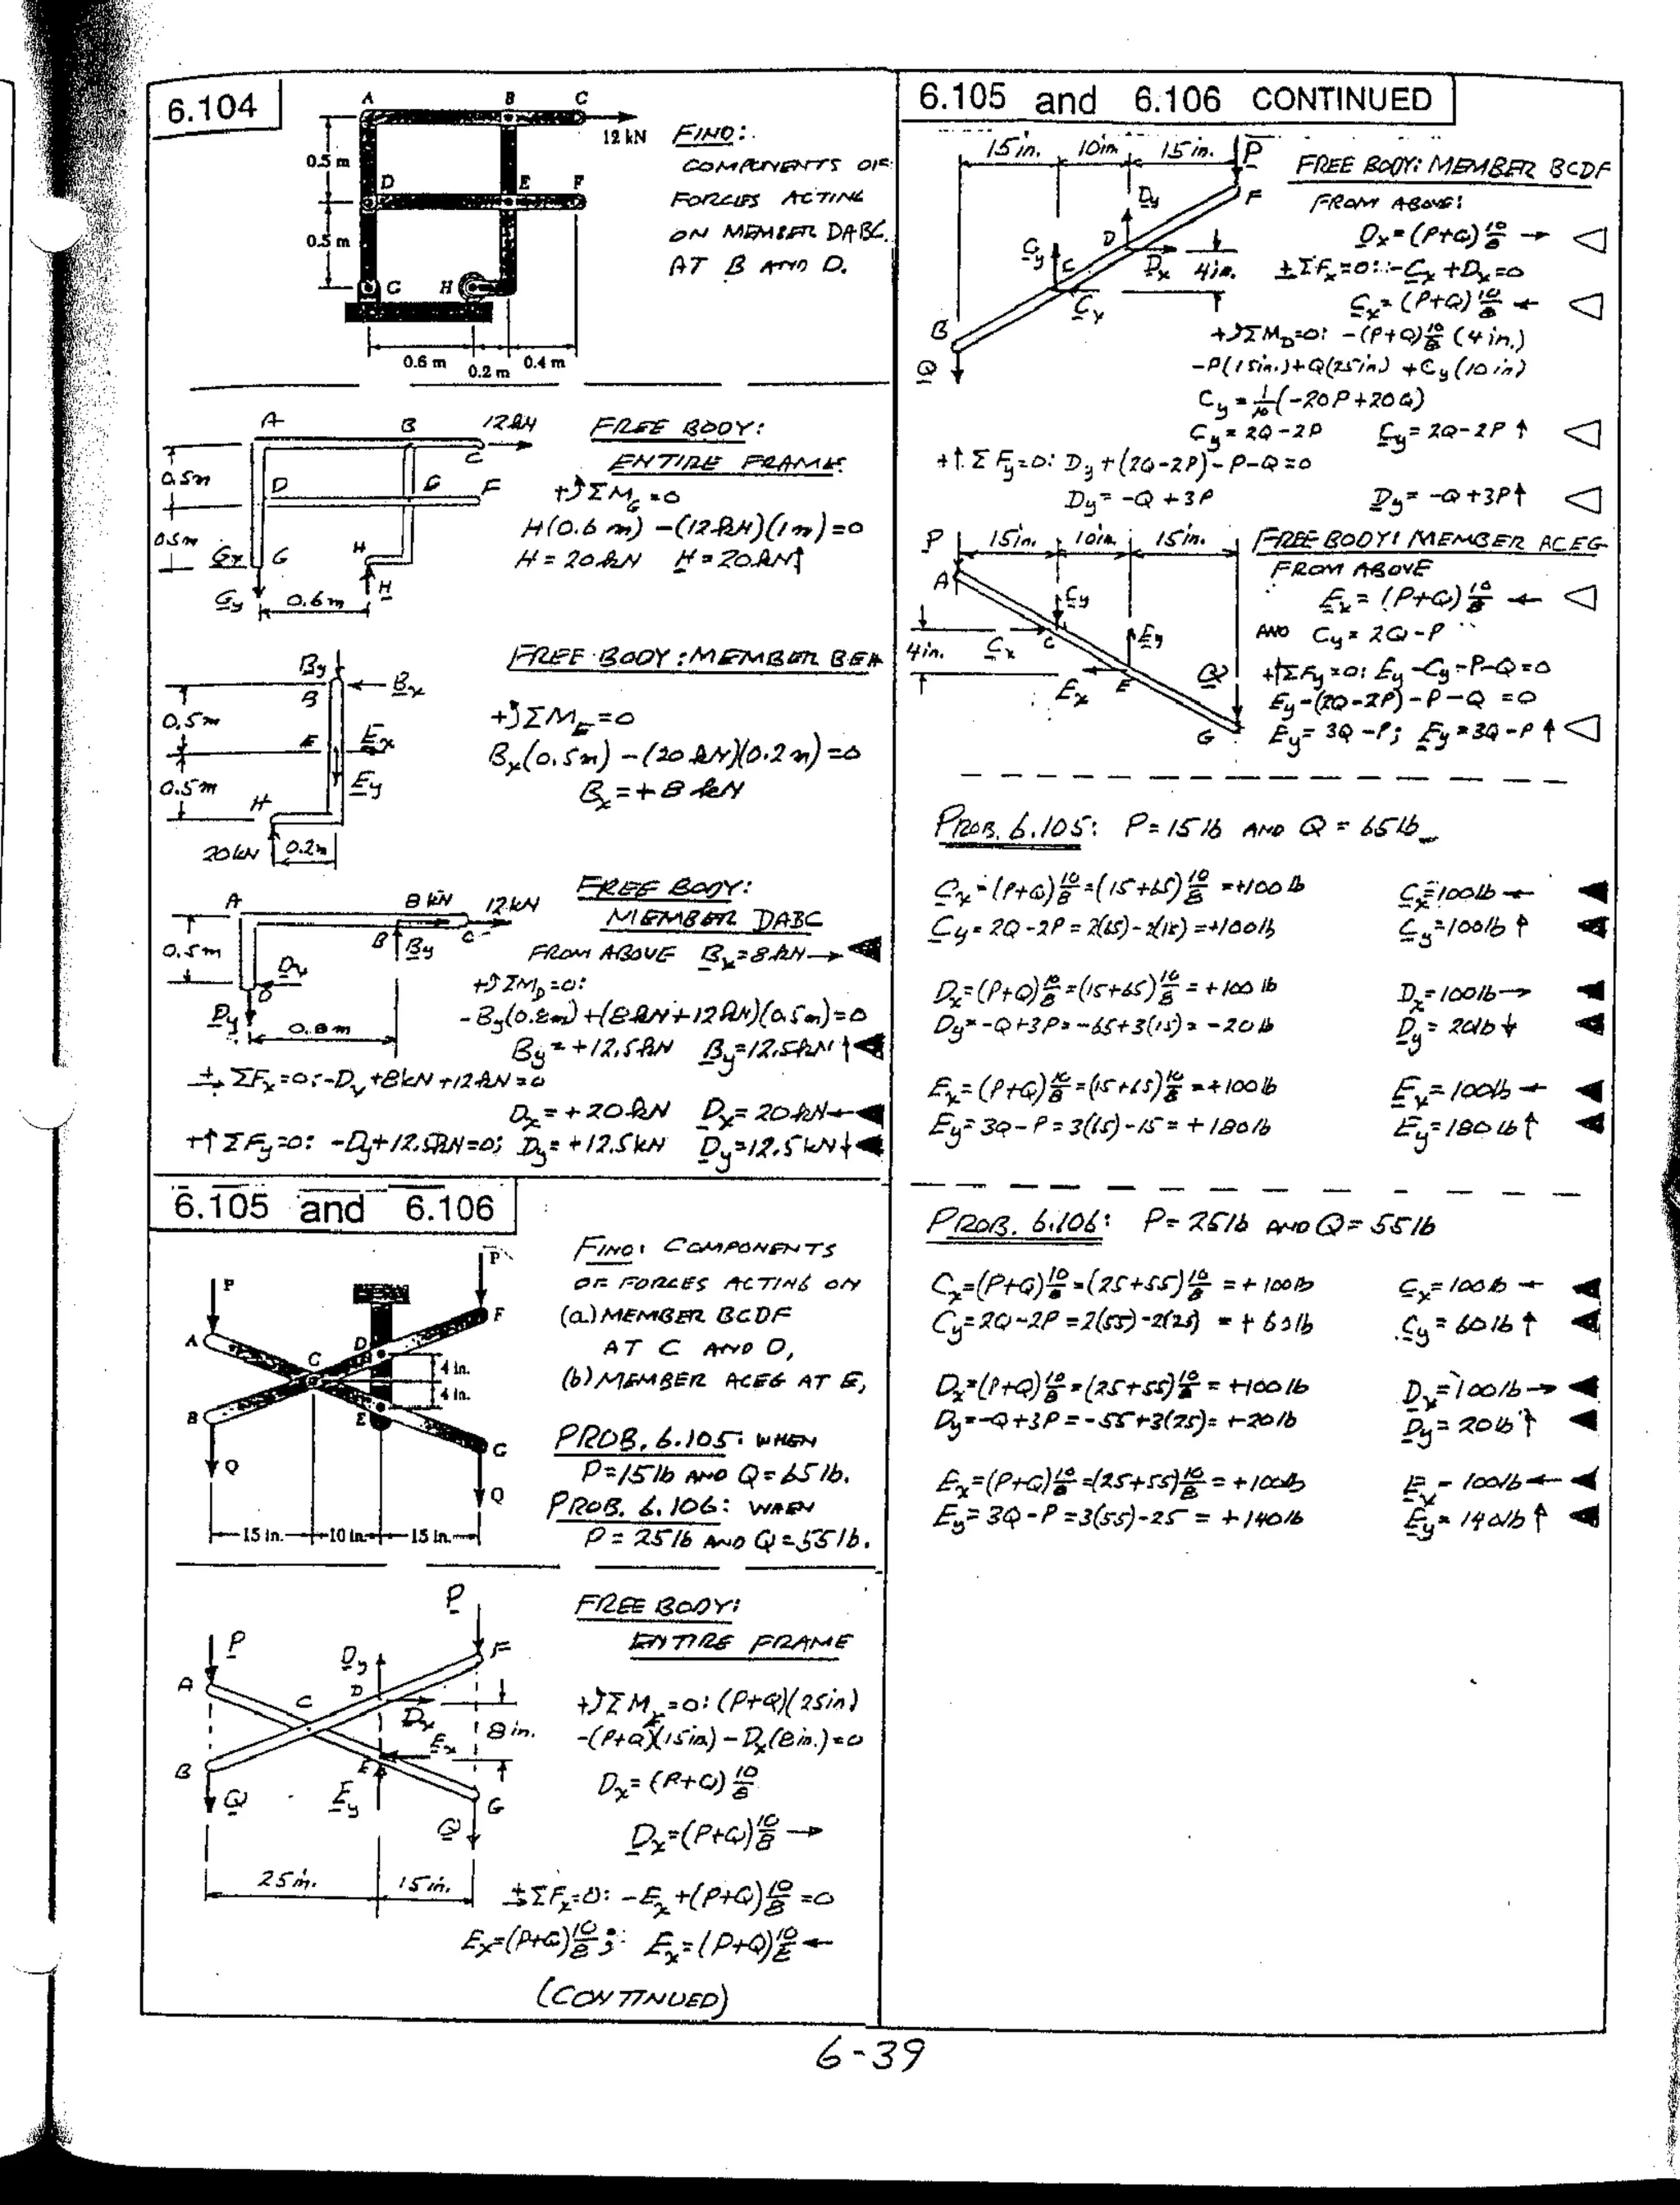 6.104
A B C
12 kN
0.5 m
D E F
0.5 m
G H
0.6 m 0.2 m 0.4 m
FIND:
COMPONENTS OF
FORCES ACTING
ON MEMBER DABC
AT B AND D.
A B 12 kN
C
0.5m
D E F
0.5m
Gx G H
Gy 0.6m H
FREE BODY:
ENTIRE FRAME
+↺ΣM_G=0
H(0.6 m) -(12 kN)(1m)=0
H = 20 kN H = 20 kN↑
By
B Bx
0.5m
E Ex
0.5m Ey
H
20kN 0.2m
FREE BODY: MEMBER BEH
+↺ΣM_E=0
Bx(0.5m) -(20 kN)(0.2m)=0
Bx=+8 kN
A 8 kN 12kN
B By C
0.5m
Dx
D
Dy 0.8m
FREE BODY:
MEMBER DABC
FROM ABOVE Bx=8kN→
+↺ΣM_D=0:
-By(0.8m)+(8kN+12kN)(0.5m)=0
By=+12.5kN By=12.5kN↑
ΣFx=0: -Dx+8kN+12kN=0
Dx=+20kN Dx=20kN←
+↑ΣFy=0: -Dy+12.5kN=0; Dy=+12.5kN Dy=12.5kN↓
6.105 and 6.106
P P
A F
D
C 4 in.
4 in.
B E
G
Q Q
15 in. 10 in. 15 in.
FIND: COMPONENTS
OF FORCES ACTING ON
(a) MEMBER BCDF
AT C AND D,
(b) MEMBER ACEG AT E,
PROB. 6.105: WHEN
P=15lb AND Q=65lb.
PROB. 6.106: WHEN
P=25lb AND Q=55lb.
P
P F
Dy
A C D
Dx 8in.
Ex
B E
Q Ey G
Q
25in. 15in.
FREE BODY:
ENTIRE FRAME
+↺ΣM_E=0: (P+Q)(25in)
-(P+Q)(15in)-Dx(8in.)=0
Dx=(P+Q)10/8
Dx=(P+Q)10/8→
ΣFx=0: -Ex+(P+Q)10/8=0
Ex=(P+Q)10/8; Ex=(P+Q)10/8←
(CONTINUED)
6.105 and 6.106 CONTINUED
15in. 10in. 15in. P
F
Dy
D
Cy C Dx 4in.
Cx
B
Q
FREE BODY: MEMBER BCDF
FROM ABOVE:
Dx=(P+Q)10/8→
ΣFx=0: -Cx+Dx=0
Cx=(P+Q)10/8←
+↺ΣM_D=0: -(P+Q)10/8(4in.)
-P(15in.)+Q(25in)+Cy(10in)
Cy=1/10(-20P+20Q)
Cy=2Q-2P Cy=2Q-2P↑
+↑ΣFy=0: Dy+(2Q-2P)-P-Q=0
Dy=-Q+3P Dy=-Q+3P↑
P 15in. 10in. 15in.
A
Cy
4in. Cx C Ey
Ex E Q
G
FREE BODY: MEMBER ACEG
FROM ABOVE
Ex=(P+Q)10/8←
AND Cy=2Q-P
+↑ΣFy=0: Ey-Cy-P-Q=0
Ey-(2Q-2P)-P-Q=0
Ey=3Q-P; Ey=3Q-P↑
PROB. 6.105: P=15lb AND Q=65lb
Cx=(P+Q)10/8=(15+65)10/8=+100lb Cx=100lb←
Cy=2Q-2P=2(65)-2(15)=+100lb Cy=100lb↑
Dx=(P+Q)10/8=(15+65)10/8=+100lb Dx=100lb→
Dy=-Q+3P=-65+3(15)=-20lb Dy=20lb↓
Ex=(P+Q)10/8=(15+65)10/8=+100lb Ex=100lb←
Ey=3Q-P=3(65)-15=+180lb Ey=180lb↑
PROB. 6.106: P=25lb AND Q=55lb
Cx=(P+Q)10/8=(25+55)10/8=+100lb Cx=100lb←
Cy=2Q-2P=2(55)-2(25)=+60lb Cy=60lb↑
Dx=(P+Q)10/8=(25+55)10/8=+100lb Dx=100lb→
Dy=-Q+3P=-55+3(25)=+20lb Dy=20lb↑
Ex=(P+Q)10/8=(25+55)10/8=+100lb Ex=100lb←
Ey=3Q-P=3(55)-25=+140lb Ey=140lb↑
6-39